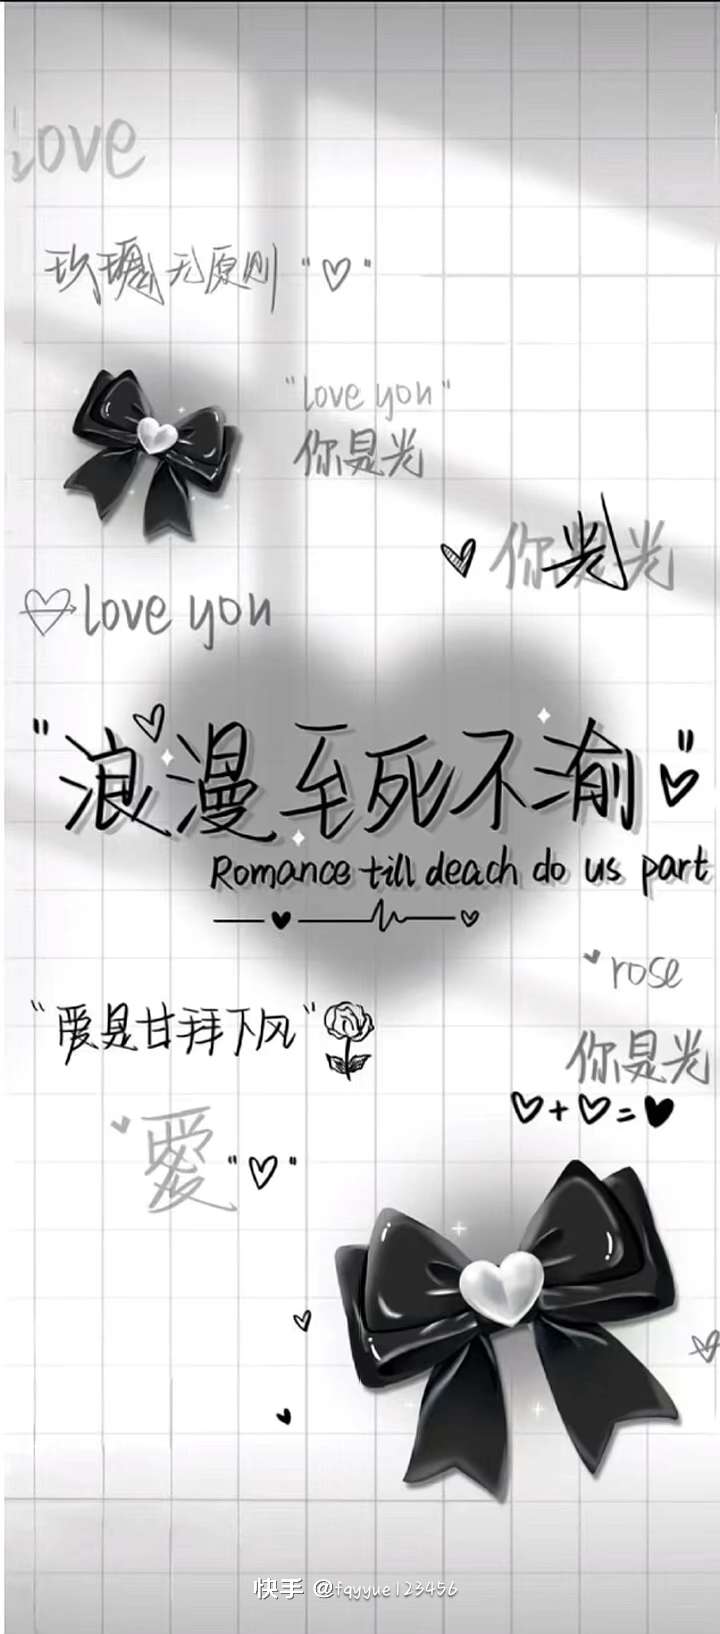 love
玫瑰无原则 "♡"
"love you"
你是光
你是光
love you
"浪漫至死不渝"
Romance till deach do us part
rose
"爱是甘拜下风"
你是光
♡+♡=♥
愛 "♡"
快手 @fqyyue123456